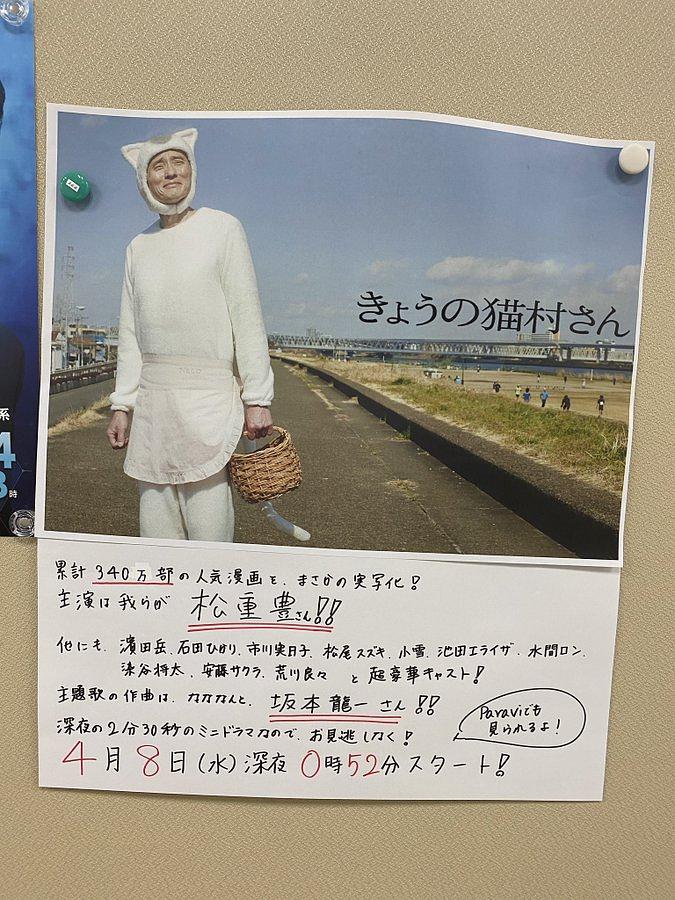 きょうの猫村さん
NECO
累計340万部の人気漫画を、まさかの実写化!
主演は我らが 松重豊さん!!
他にも、濱田岳、石田ひかり、市川実日子、松尾スズキ、小雪、池田エライザ、水間ロン、
染谷将太、安藤サクラ、荒川良々 と 超豪華キャスト!
主題歌の作曲は、ななななんと、坂本龍一さん!!
深夜の2分30秒のミニドラマなので、お見逃しなく!
Paraviでも
見られるよ!
4月8日(水)深夜0時52分スタート!
系
4
時